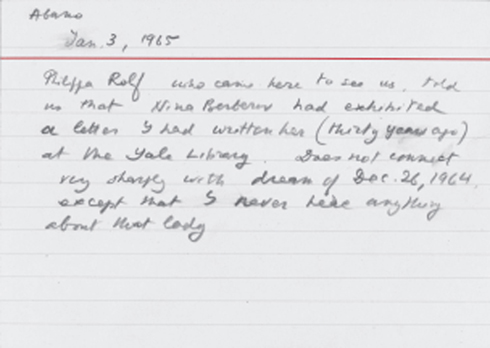 Abano
Jan. 3, 1965
Philippa Rolf who came here to see us, told
us that Nina Berberov had exhibited
a letter I had written her (thirty years ago)
at the Yale Library. Does not connect
very sharply with dream of Dec. 26, 1964,
except that I never hear anything
about that lady